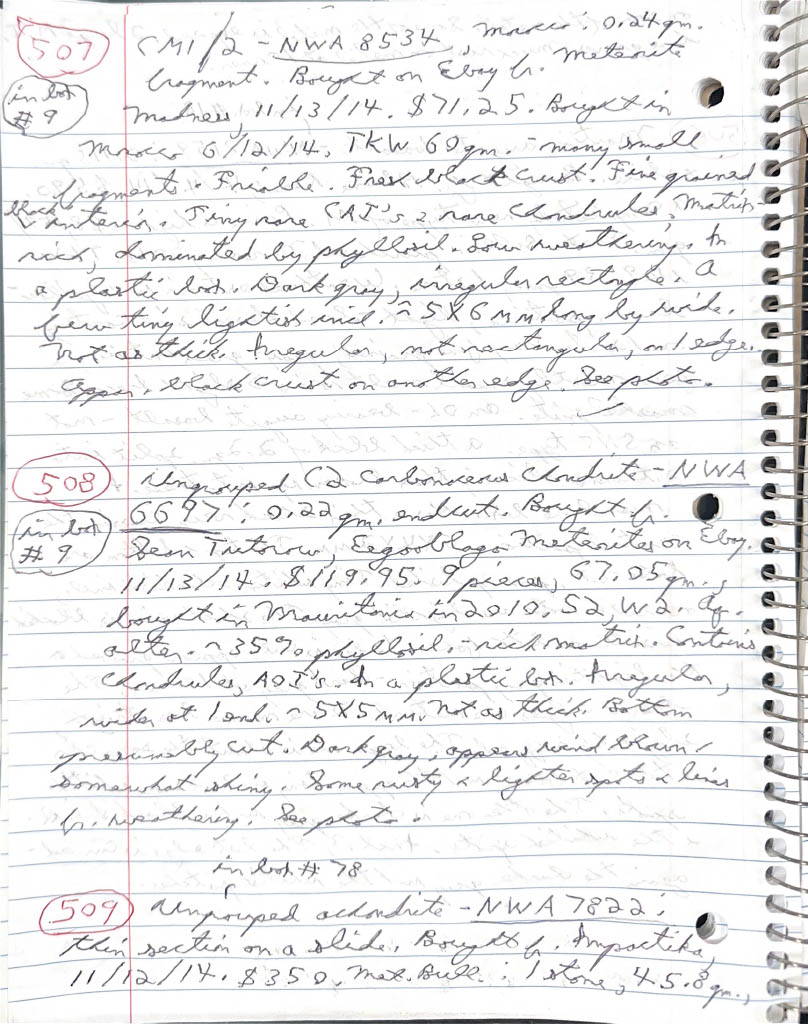 507 CM1/2 - NWA 8534, Morocco: 0.24gm.
fragment. Bought on Ebay fr. Meteorite
in box # 9
Madness, 11/13/14. $71.25. Bought in
Morocco 6/12/14. TKW 60gm. - many small
fragments. Friable. Fresh black crust. Fine grained
black interior. Tiny rare CAI's & rare chondrules, Matrix-
rich, dominated by phyllosil. Low weathering. In
a plastic box. Dark gray, irregular rectangle. A
few tiny lightish incl. ~ 5X6mm long by wide.
Not as thick. Irregular, not rectangular, on 1 edge.
Appar. black crust on another edge. See photo.
508 Ungrouped C2 Carbonaceous Chondrite - NWA
6697: 0.22 gm. endcut. Bought fr.
in box # 9
Sean Tutorow, Eegooblago Meteorites on Ebay.
11/13/14. $119.95. 9 pieces, 67.05gm.,
bought in Mauritania in 2010. S2, W2. Aq.
alter. ~35% phyllosil.-rich matrix. Contains
Chondrules, AOI's. In a plastic box. Irregular,
wider at 1 end. ~ 5X5mm. Not as thick. Bottom
presumably cut. Dark gray, appears wind blown/
somewhat shiny. Some rusty & lighter spots & lines
fr. weathering. See photo.
in box # 78
509 Ungrouped achondrite - NWA 7822:
thin section on a slide. Bought fr. Impactika,
11/12/14. $350. Met. Bull.: 1 stone, 45.8gm.,